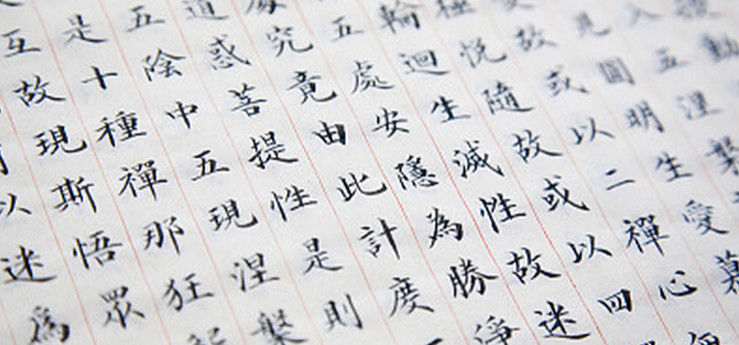 動
五涅槃
見圓明生愛慕
故或以二禪心
極悅隨故或以四
輪迴生滅性故迷
五處安隱為勝淨
究竟由此計度
道惑菩提性是則
五陰中五現涅槃
是十種禪那狂
互故現斯悟眾
以迷為